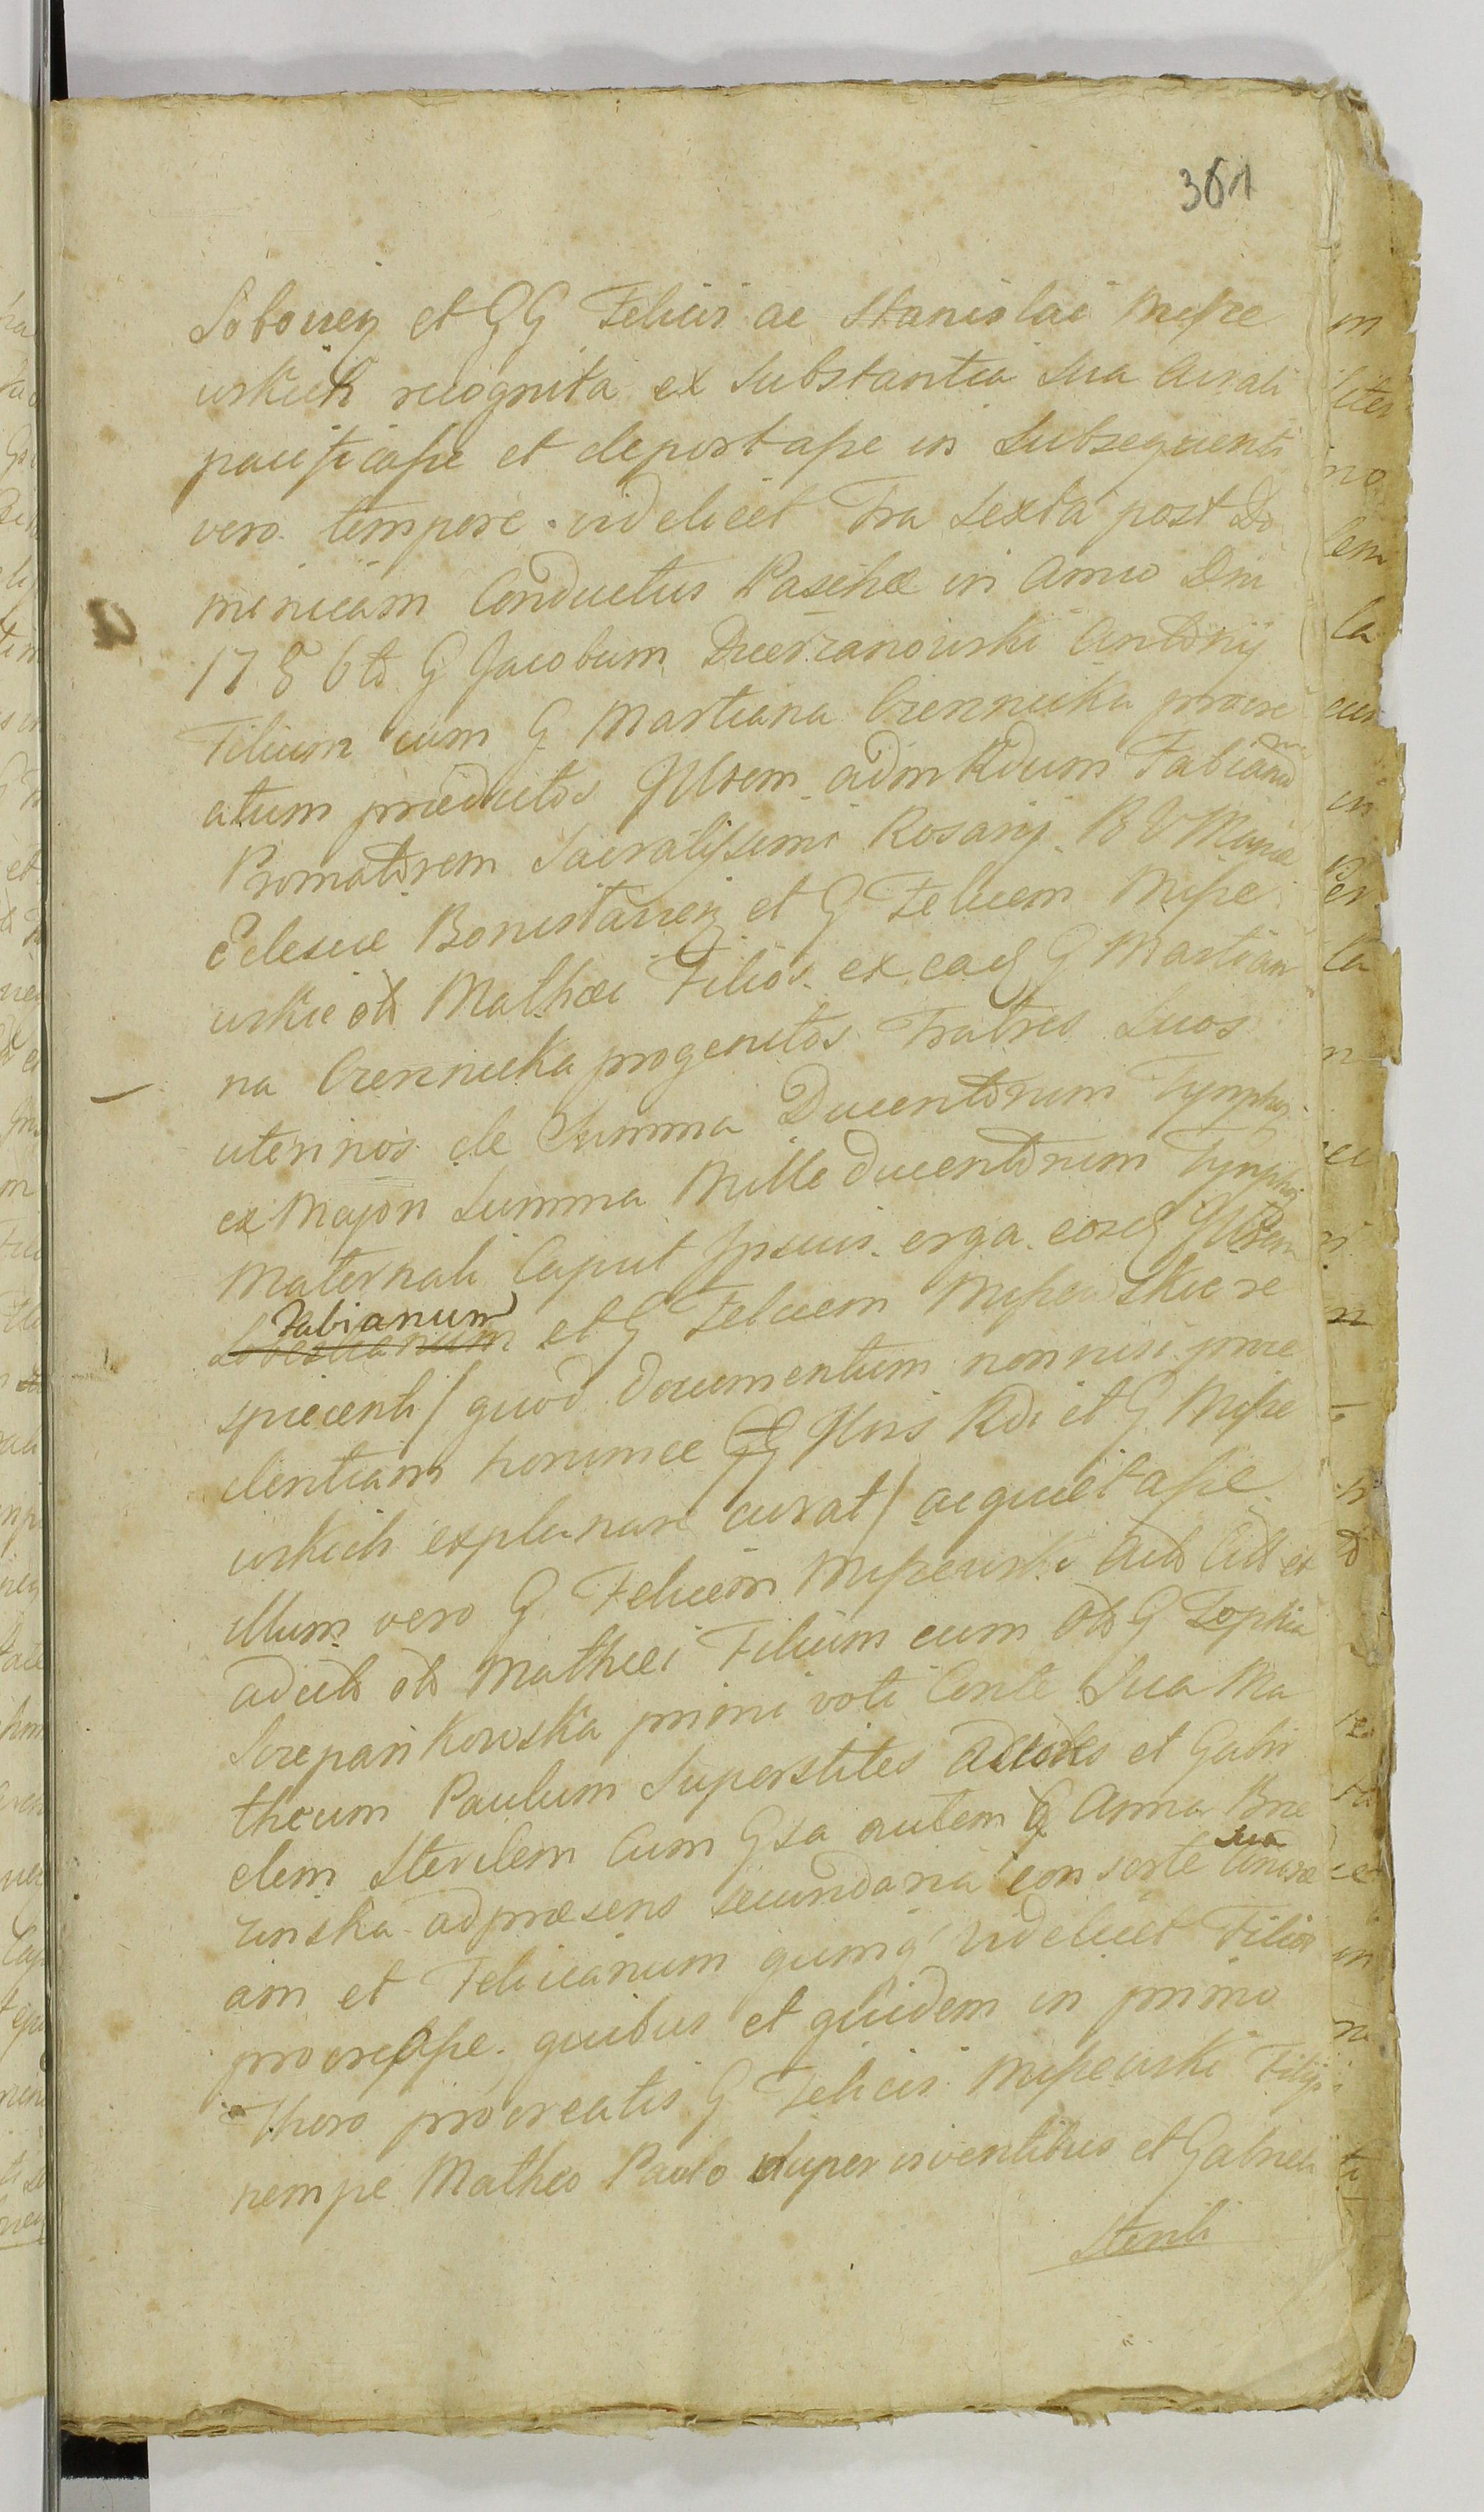 361
Sobocrey et GG Felicis ac Stanislai Misze
wskich recognita ex Substantia Sua Avrali
pacificasse et deportasse in Subsequenti
vero tempore videlicet Fra Sexta post Do
minicam Conductus Paschæ in Anno Dni
1786to G Jacobum Dzierzanowski Antonij
Filium cum G Martiana Cziennicka procre
atum præductos Illrem admRdum Fabianum
Promotorem Sacratissimi Rosarij B V Mariæ
Eclesiæ et G Felicem Misze
wskie ol Mathæi Filios ex ead G Martian
na Cziennicka progenitos Fratres Suos
uterinos de Summa Ducentorum Tymphor
ex Majori Summa Mille ducentorum Tymphor
Maternali Caput Ipsius erga eosd Illrem
Fabianum et G Felicem Miszewskie re
spicienti / quod documentum non nisi prove
dentiam horumce GG Illris Rdi et G Misze
wskich explanare curat / acquietasse
illum vero G Felicem Miszewski
Mathæi Filium cum olo G Zophia
Szczepankowska primi voti Conte Sua Ma
theum Paulum Superstites Actores et Gabri
elem Sterilem Cum Gsa autem G Anna Brze
zinska ad præsens secundaria consorte Sua
am et Felicianum quinq videlicet Filios
procreasse quibus et quidem in primo
Thoro procreatis G Felicis Miszewski Filijs
nempe Matheo Paulo Super viventibus et Gabrieli
Sterili